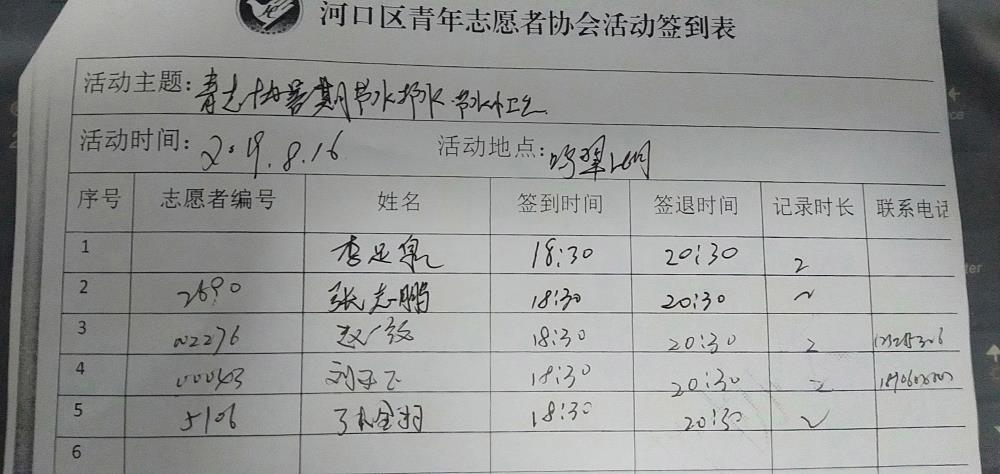 河口区青年志愿者协会活动签到表
活动主题：青志协暑期节水护水
活动时间：2019.8.16 活动地点：
序号 志愿者编号 姓名 签到时间 签退时间 记录时长 联系电话
1 18:30 20:30 2
2 2690 张志鹏 18:30 20:30 2
3 02276 18:30 20:30 2
4 00043 18:30 20:30 2
5 5106 18:30 20:30 2
6